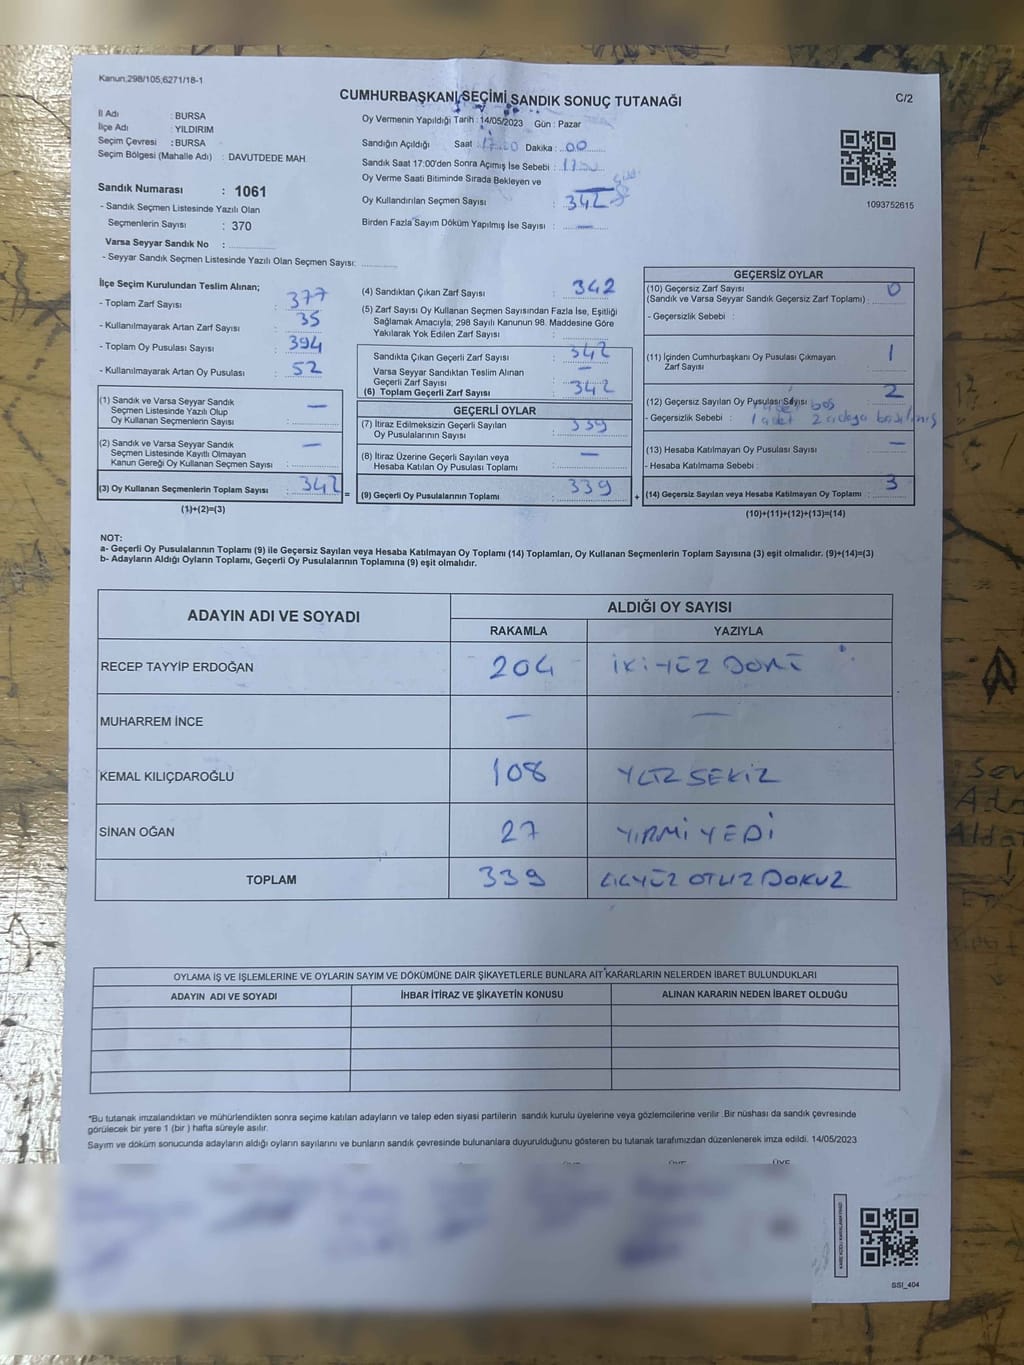 Kanun;298/105;6271/18-1
CUMHURBAŞKANI SEÇİMİ SANDIK SONUÇ TUTANAĞI
C/2
İl Adı : BURSA
İlçe Adı : YILDIRIM
Seçim Çevresi : BURSA
Seçim Bölgesi (Mahalle Adı) : DAVUTDEDE MAH.
Oy Vermenin Yapıldığı Tarih : 14/05/2023 Gün : Pazar
Sandığın Açıldığı Saat : 17.00 Dakika : 00
Sandık Saat 17:00'den Sonra Açımış İse Sebebi :
Oy Verme Saati Bitiminde Sırada Bekleyen ve
Oy Kullandırılan Seçmen Sayısı : 342
Birden Fazla Sayım Döküm Yapılmış İse Sayısı : —
1093752615
Sandık Numarası : 1061
- Sandık Seçmen Listesinde Yazılı Olan
Seçmenlerin Sayısı : 370
Varsa Seyyar Sandık No :
- Seyyar Sandık Seçmen Listesinde Yazılı Olan Seçmen Sayısı:
İlçe Seçim Kurulundan Teslim Alınan;
- Toplam Zarf Sayısı : 377
- Kullanılmayarak Artan Zarf Sayısı : 35
- Toplam Oy Pusulası Sayısı : 394
- Kullanılmayarak Artan Oy Pusulası : 52
(1) Sandık ve Varsa Seyyar Sandık
Seçmen Listesinde Yazılı Olup
Oy Kullanan Seçmenlerin Sayısı : —
(2) Sandık ve Varsa Seyyar Sandık
Seçmen Listesinde Kayıtlı Olmayan
Kanun Gereği Oy Kullanan Seçmen Sayısı : —
(3) Oy Kullanan Seçmenlerin Toplam Sayısı : 342 =
(1)+(2)=(3)
(4) Sandıktan Çıkan Zarf Sayısı : 342
(5) Zarf Sayısı Oy Kullanan Seçmen Sayısından Fazla İse, Eşitliği
Sağlamak Amacıyla; 298 Sayılı Kanunun 98. Maddesine Göre
Yakılarak Yok Edilen Zarf Sayısı :
Sandıkta Çıkan Geçerli Zarf Sayısı : 342
Varsa Seyyar Sandıktan Teslim Alınan
Geçerli Zarf Sayısı : —
(6) Toplam Geçerli Zarf Sayısı : 342
GEÇERLİ OYLAR
(7) İtiraz Edilmeksizin Geçerli Sayılan
Oy Pusulalarının Sayısı : 339
(8) İtiraz Üzerine Geçerli Sayılan veya
Hesaba Katılan Oy Pusulası Toplamı : —
(9) Geçerli Oy Pusulalarının Toplamı : 339 +
GEÇERSİZ OYLAR
(10) Geçersiz Zarf Sayısı
(Sandık ve Varsa Seyyar Sandık Geçersiz Zarf Toplamı) : 0
- Geçersizlik Sebebi :
(11) İçinden Cumhurbaşkanı Oy Pusulası Çıkmayan
Zarf Sayısı : 1
(12) Geçersiz Sayılan Oy Pusulası Sayısı : 2
1 adet boş
- Geçersizlik Sebebi : 1 adet 2 adaya basılmış
(13) Hesaba Katılmayan Oy Pusulası Sayısı : —
- Hesaba Katılmama Sebebi :
(14) Geçersiz Sayılan veya Hesaba Katılmayan Oy Toplamı : 3
(10)+(11)+(12)+(13)=(14)
NOT:
a- Geçerli Oy Pusulalarının Toplamı (9) ile Geçersiz Sayılan veya Hesaba Katılmayan Oy Toplamı (14) Toplamları, Oy Kullanan Seçmenlerin Toplam Sayısına (3) eşit olmalıdır. (9)+(14)=(3)
b- Adayların Aldığı Oyların Toplamı, Geçerli Oy Pusulalarının Toplamına (9) eşit olmalıdır.
ADAYIN ADI VE SOYADI
ALDIĞI OY SAYISI
RAKAMLA YAZIYLA
RECEP TAYYİP ERDOĞAN 204 İKİYÜZ DÖRT
MUHARREM İNCE — —
KEMAL KILIÇDAROĞLU 108 YÜZ SEKİZ
SİNAN OĞAN 27 YİRMİYEDİ
TOPLAM 339 ÜÇYÜZ OTUZ DOKUZ
OYLAMA İŞ VE İŞLEMLERİNE VE OYLARIN SAYIM VE DÖKÜMÜNE DAİR ŞİKAYETLERLE BUNLARA AİT KARARLARIN NELERDEN İBARET BULUNDUKLARI
ADAYIN ADI VE SOYADI İHBAR İTİRAZ VE ŞİKAYETİN KONUSU ALINAN KARARIN NEDEN İBARET OLDUĞU
*Bu tutanak imzalandıktan ve mühürlendikten sonra seçime katılan adayların ve talep eden siyasi partilerin sandık kurulu üyelerine veya gözlemcilerine verilir .Bir nüshası da sandık çevresinde
görülecek bir yere 1 (bir ) hafta süreyle asılır.
Sayım ve döküm sonucunda adayların aldığı oyların sayılarını ve bunların sandık çevresinde bulunanlara duyurulduğunu gösteren bu tutanak tarafımızdan düzenlenerek imza edildi. 14/05/2023
SSI_404